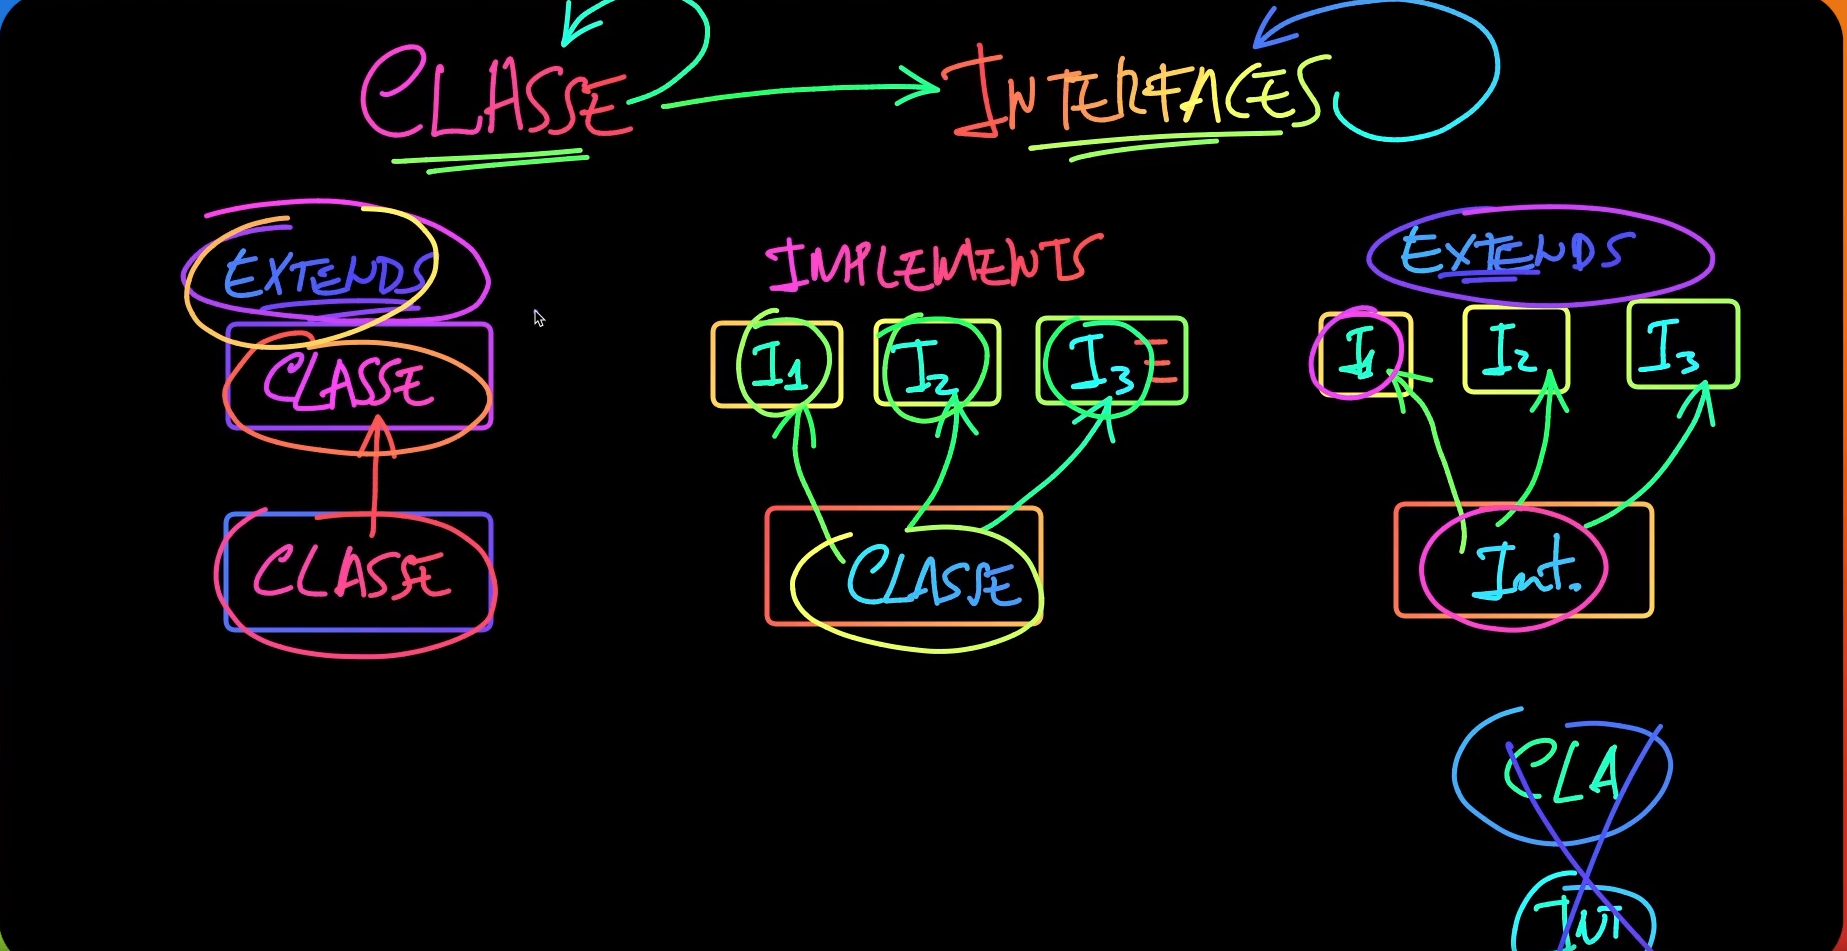 CLASSE INTERFACES
EXTENDS
CLASSE
CLASSE
IMPLEMENTS
I1 I2 I3
CLASSE
EXTENDS
I1 I2 I3
Int.
CLA
INT